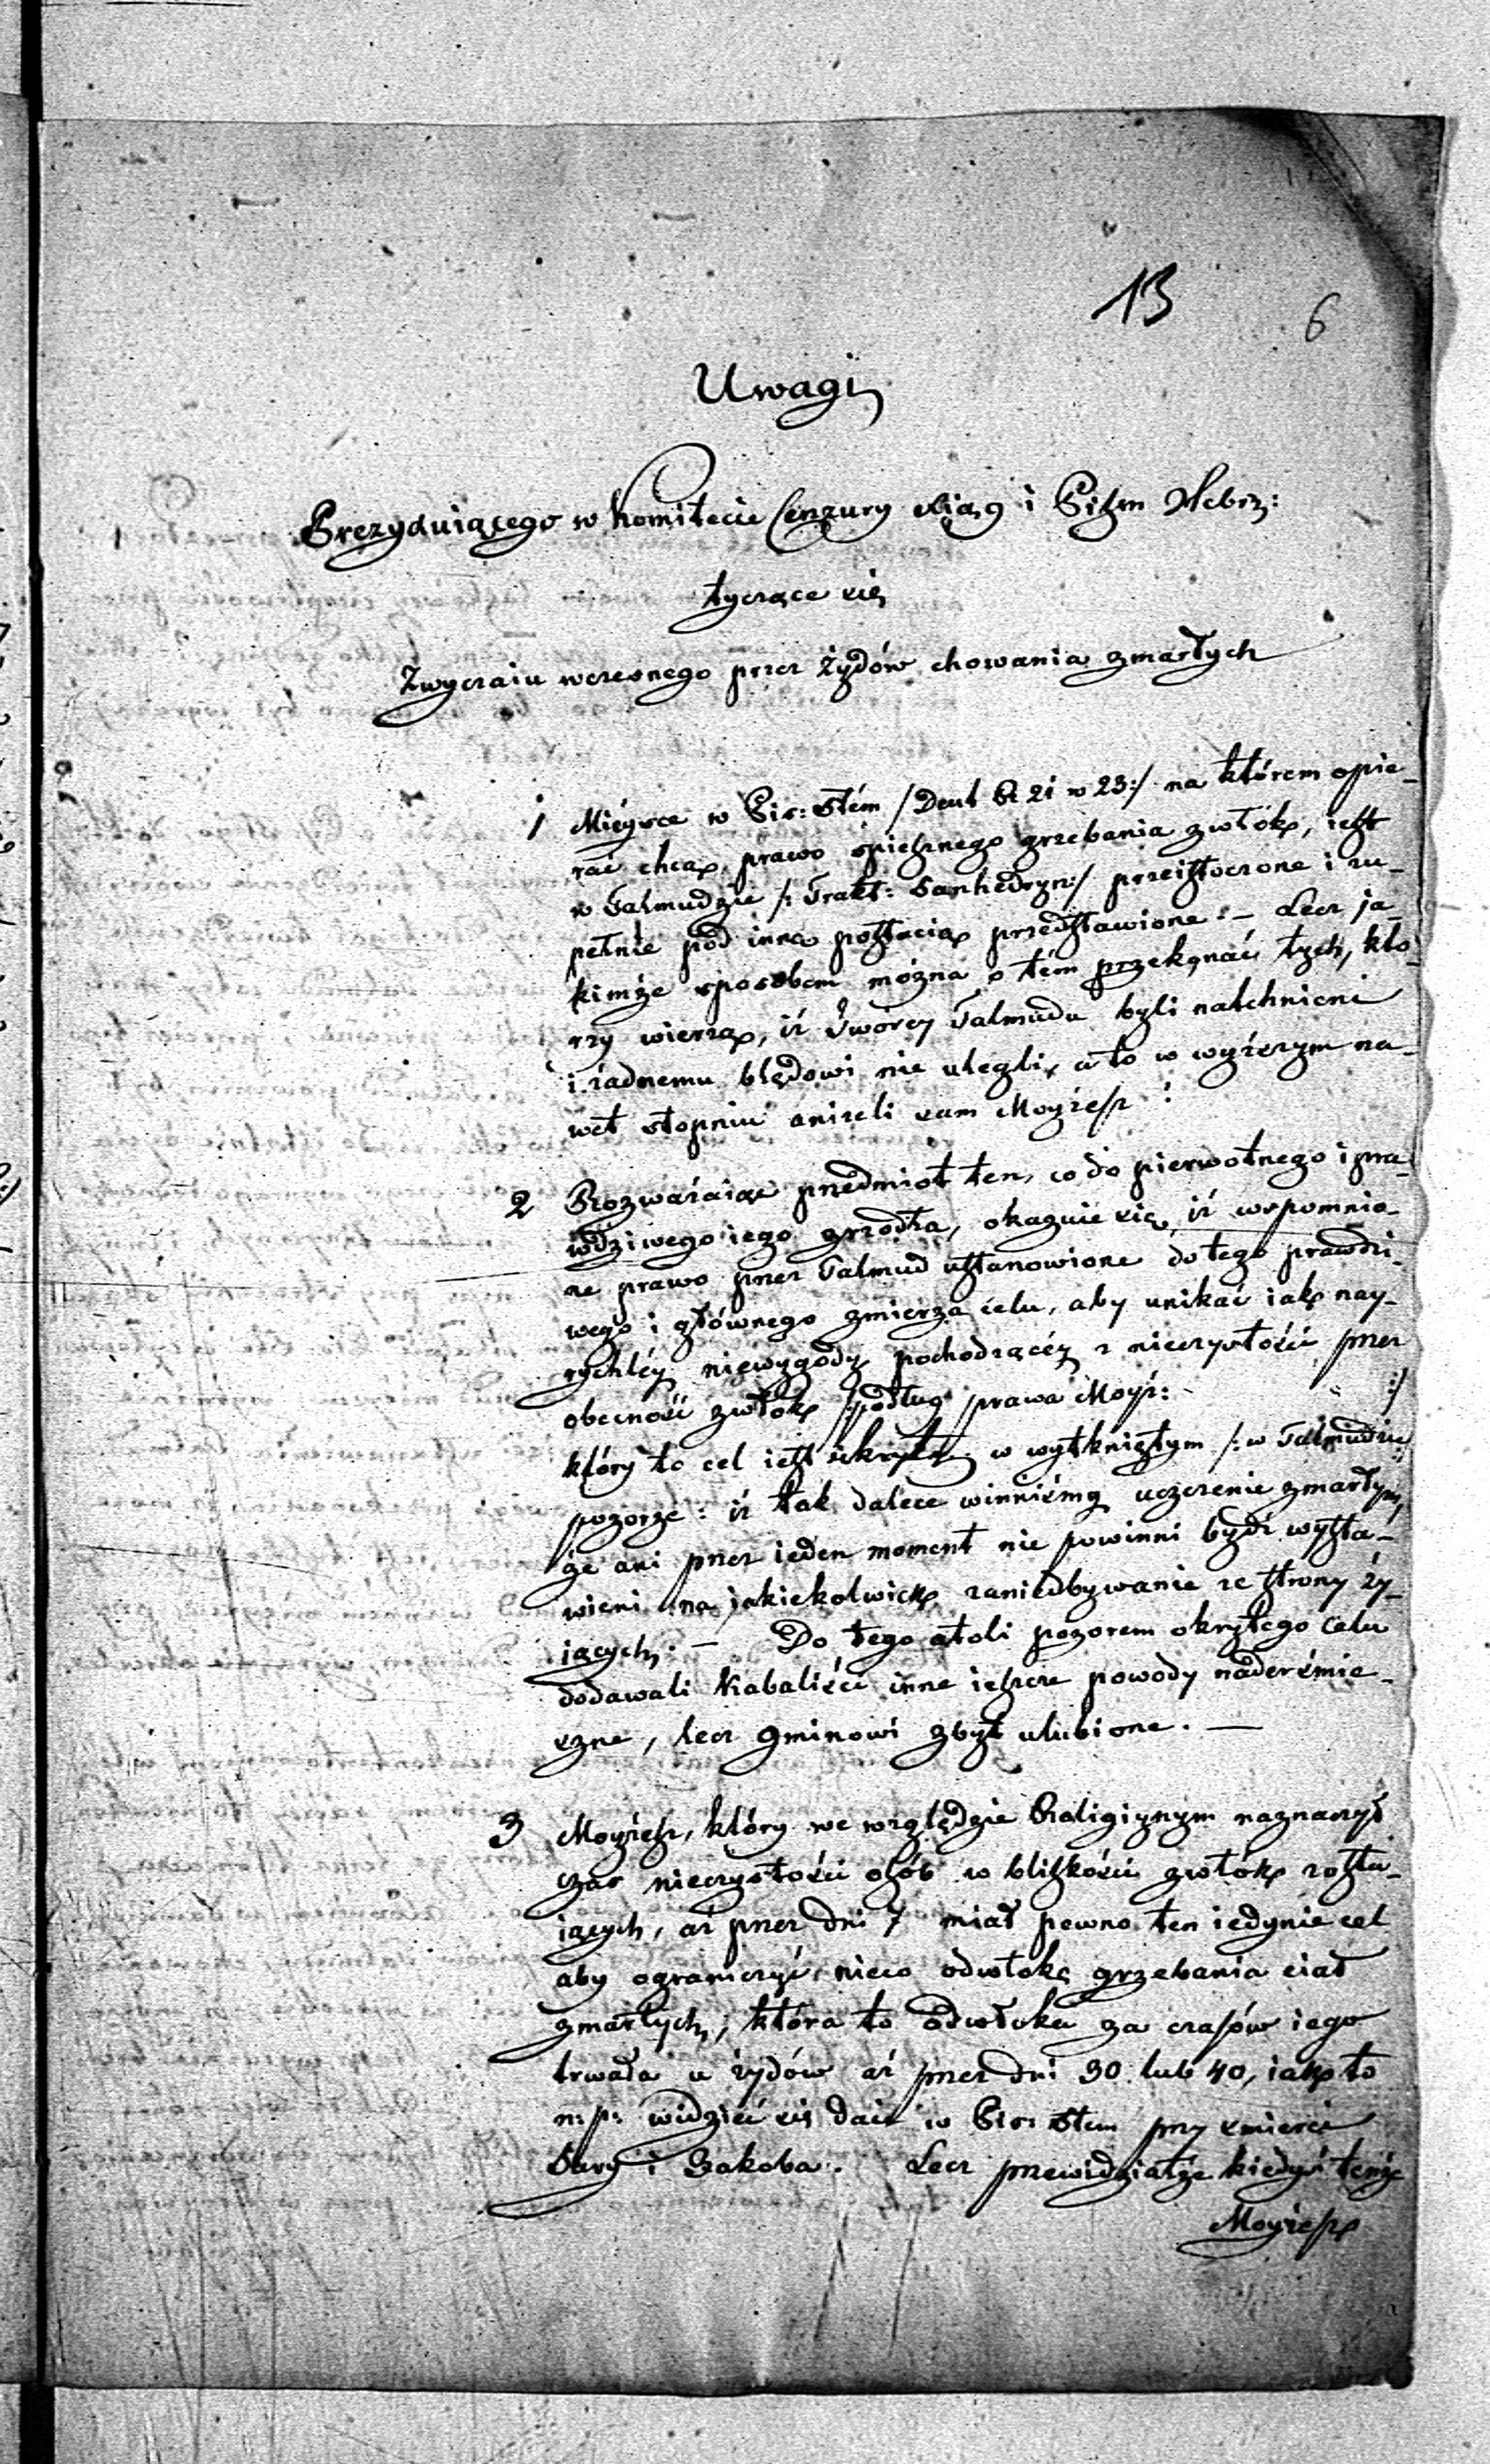 13 6
Uwagi
Prezyduiącego w Komitecie Cenzury Xiąg i Pism Hebrz:
tyczące się
Zwyczaiu wczesnego przez żydów chowania zmarłych
1 Mieysce w Pis: Stém /Deut R 21 w 23:/ na którem opie-
rać chcą prawo spiesznego grzebania zwłók, iest
w Talmudzie /: Trakt: Sanhedryn:/ przeistoczone i zu-
pełnie pod inną postacią przedstawione. – Lecz ja-
kimże sposobem można o tém przekonać tych, któ-
rzy wierzą, iż Twórcy Talmudu byli natchnieni
i żadnemu błędowi nie ulegli, a to w wyższym na-
wet stopniu aniżeli sam Moyżesz?
2 Rozważaiąc przedmiot ten, co do pierwotnego i pra-
wdziwego iego źrzódła, okazuie się iż wspomnio-
ne prawo przez Talmud ustanowione do tego prawdzi-
wego i głównego zmierza celu, aby unikać iak nay-
rychléy niewygody pochodzącéy z nieczystości przez
obecność zwłók /:podług prawa Moyż: :/
który to cel iest ukryty w wytkniętym /: w Talmudzie :/
pozorze: iż tak dalece winniśmy uczczenie zmarłym,
że ani przez ieden moment nie powinni bydź wysta-
wieni na jakiekolwiek zaniedbywanie ze strony ży-
iących. – Do tego atoli pozorem okrytego celu
dodawali Kabaliści inne ieszcze powody nader śmie-
szne, lecz gminowi zbyt ulubione. —
3 Moyżesz, który we względzie Religiynym naznaczył
czas nieczystości osób w bliskości zwłók zosta-
iących, aż przez dni 7 miał pewno ten iedynie cel
aby ograniczyć nieco odwłokę grzebania ciał
zmarłych, która to odwłoka za czasów iego
trwała u żydów aż przez dni 30 lub 40, iak to
n: p: widzieć się daie w Pis: Stem przy śmierci
Sary i Jakoba. Lecz przewidziałże kiedyś tenże
Moyżesz